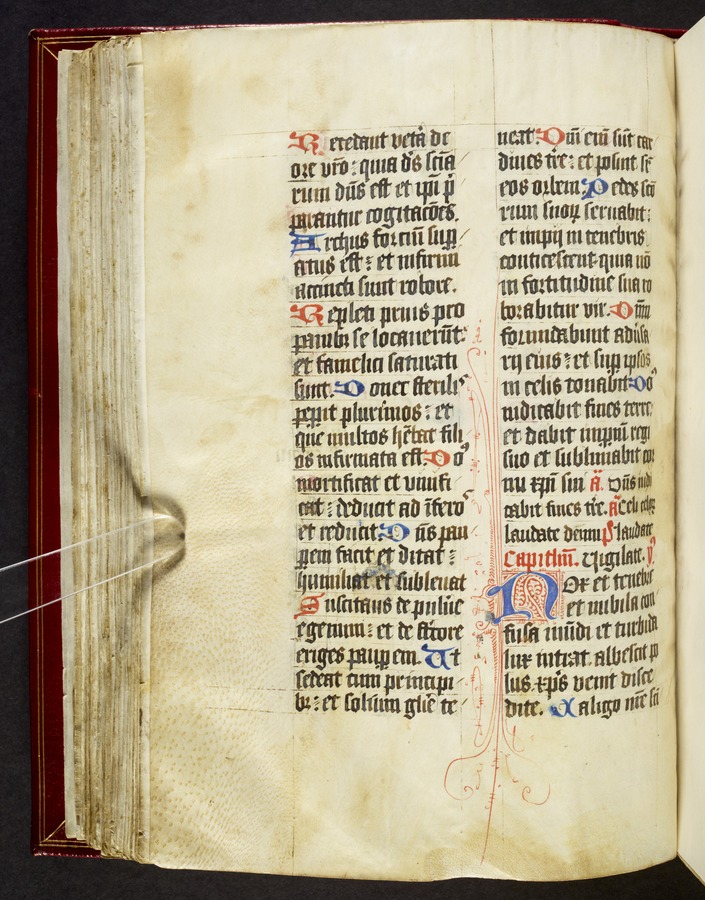 Recedant vet̄a de
ore vr̄o : quia d̄s sc̄ia
rum dn̄s est et ip̄i p̄
parantur cogitac̄ōes.
Archus fortiū sup̄
atus est : et infirmi
accincti sunt robore.
Repleti prius pro
panibꝫ se locauerūt :
et famelici saturati
sunt. Donec sterilis
peperit plurimos : et
que multos hēbat fili
os infirmata est. Do
mortificat et viuifi
cat : deducit ad īfero
et reducit. Dn̄s pau
perem facit et ditat :
humiliat et subleuat
Suscitans de puluē
egenum : et de stēore
eriges pauperem. Ut
sedeat cum principi
bꝫ : et solium glīe te
neat. Dn̄i enī sūt car
dines tr̄e : et posuit sr̄
eos orbem. Pedes scō
rum suoꝝ seruabit :
et impii in tenebris
conticescent quia nō
in fortitudine sua ro
borabitur vir. Dom̄
formidabunt adūsa
rii eius : et sup̄ ipsos
in celis tonabit. Do
iudicabit fines terre
et dabit imp̄iū regi
suo et sublimabit cor
nu xp̄i sui a. Dn̄s iudi
cabit fines tr̄e. a Celi celoꝝ
laudate deum ps Laudate
Capitlm̄. Vigilate. y
Nox et tenebre
et nubila con
fusa mūdi et turbida
lux intrat. albescit po
lus. xp̄s venit disce
dite. Caligo tr̄e sci